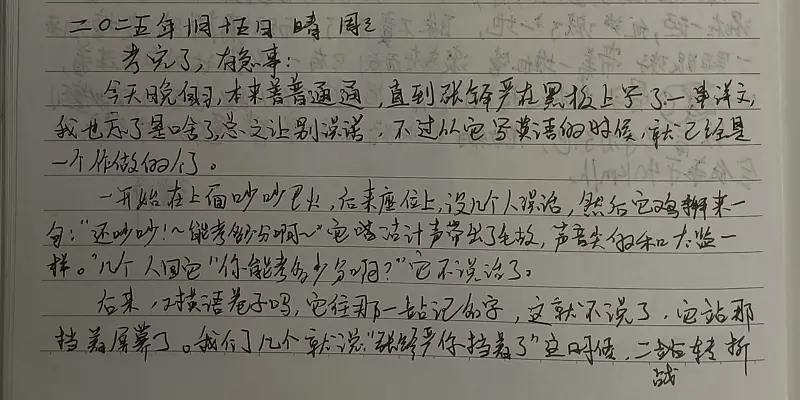 二〇二五年 十月十五日 晴 周三
考完了,有急事:
今天晚修,本来普普通通,直到张铎严在黑板上写了一串洋文,
我也忘了是啥了,总之让别误诺,不过从它写英语的时候,就已经是
一个作做的个了。
一开始在上面吵吵巴火,后来座位上,没几个人误话,然后它鸡掰来一
句:"还吵吵!~能考多少分啊~"它嗒洁计声带出了毛故,声音尖的和太监一
样。"几个人回它"你能考多少分啊?"它不说话了。
后来,对英语卷子吗,它往那一站记名字,这就不说了,它站那
挡着屏幕了。我们几个就说"张铎严你挡着了"这时候,二站转折
战